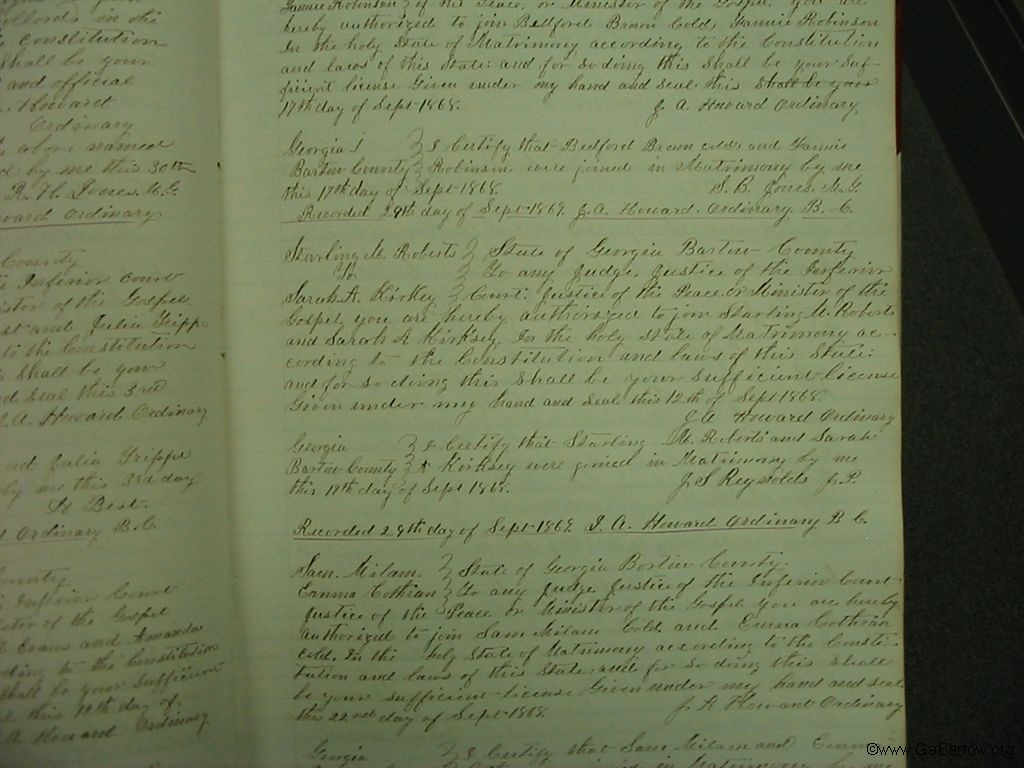 ollords in the
constitution
Shall be your
and official
Howard
Ordinary
above named
by me this 30th
R. H. Jones M. G.
ward Ordinary
County
Inferior court
ister of the Gospel
and Julia Trippe
to the Constitution
Shall be your
nd seal this 3rd
J. A. Howard Ordinary
and Julia Trippe
by me this 3rd day
Best.
Ordinary B. C.
County
Inferior Court
of the Gospel
Evans and Amanda
ding to the Constitution
Shall be your sufficient
this 12th day of
A Howard Ordinary
Fannie Robinson } of the Peace, or Minister of the Gospel. You are
hereby authorized to join Bedford Brown Cold, Fannie Robinson
In the holy State of Matrimony according to the Constitution
and laws of this State: and for so doing this Shall be your Suf-
ficient license Given under my hand and seal this Shall be your
17th day of Sept 1868. J. A. Howard Ordinary
Georgia } I Certify that Bedford Brown cold and Fannie
Bartow County } Robinson were joined in Matrimony by me
this 17th day of Sept 1868. S. B. Jones M. G.
Recorded 29th day of Sept 1869. J. A. Howard. Ordinary. B. C.
Starling M. Roberts } State of Georgia Bartow County
To } To any Judge, Justice of the Inferior
Sarah A. Kirkey } Court: Justice of the Peace, or Minister of the
Gospel, you are hereby authorized to join Starling M. Roberts
and Sarah A Kirksey. In the holy State of Matrimony ac-
cording to the Constitution and laws of this State:
and for so doing this Shall be your Sufficient license
Given under my hand and Seal this 12th of Sept 1868.
J A Howard Ordinary
Georgia } I Certify that Starling M. Roberts and Sarah
Bartow County } A Kirksey were joined in Matrimony by me
this day of Sept 1868. J. S Reynolds J. P.
Recorded 29th day of Sept 1869. J. A. Howard Ordinary B C.
Sam. Milam. } State of Georgia Bartow County.
Emma Cothran } To any Judge Justice of the Inferior Court
Justice of the Peace or Minister of the Gospel You are hereby
authorized to join Sam Milam Cold. and Emma Cothran
cold. In the holy State of Matrimony according to the Consti-
tution and laws of this State: and for so doing this Shall
be your sufficient license Given under my hand and seal
this 22nd day of Sept 1868. J. A Howard Ordinary
Georgia } I Certify that Sam Milam and Emma
in Matrimony by me
©www.GaBartow.org